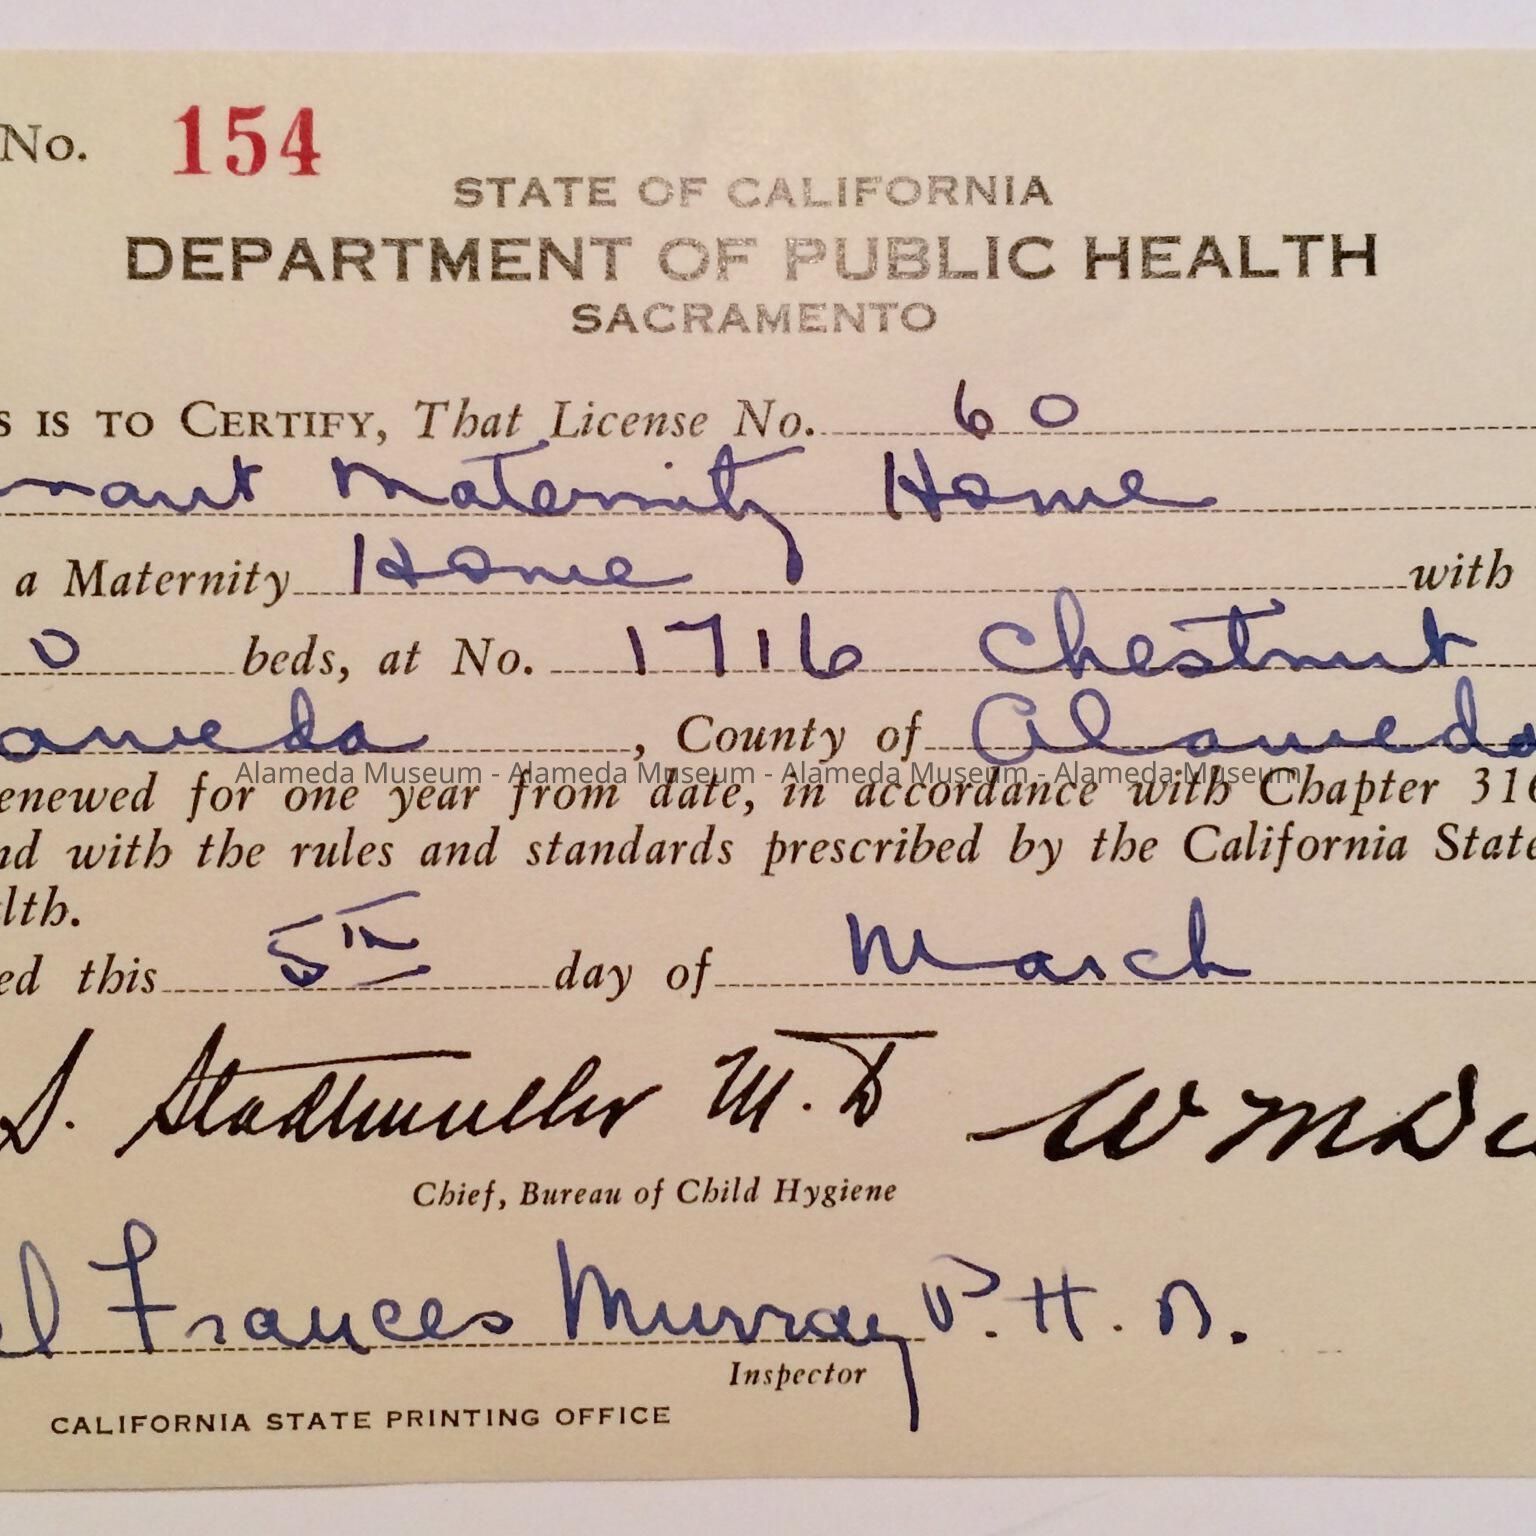 No. 154
STATE OF CALIFORNIA
DEPARTMENT OF PUBLIC HEALTH
SACRAMENTO
S IS TO CERTIFY, That License No. 60
Maternity Home
a Maternity Home with
0 beds, at No. 1716 Chestnut
ameda, County of Alameda
Alameda Museum - Alameda Museum - Alameda Museum - Alameda Museum
enewed for one year from date, in accordance with Chapter 316
nd with the rules and standards prescribed by the California State
lth.
ed this 5th day of March
S. Stadtmuller M.D W M Di
Chief, Bureau of Child Hygiene
l Frances Murray P.H.N.
Inspector
CALIFORNIA STATE PRINTING OFFICE